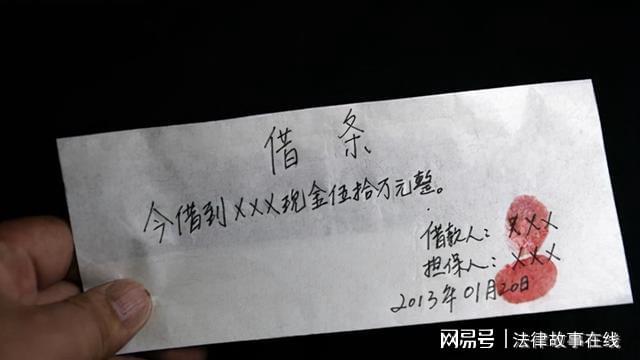 借条
今借到XXX现金伍拾万元整。
借款人：XXX
担保人：XXX
2013年01月20日
网易号 | 法律故事在线